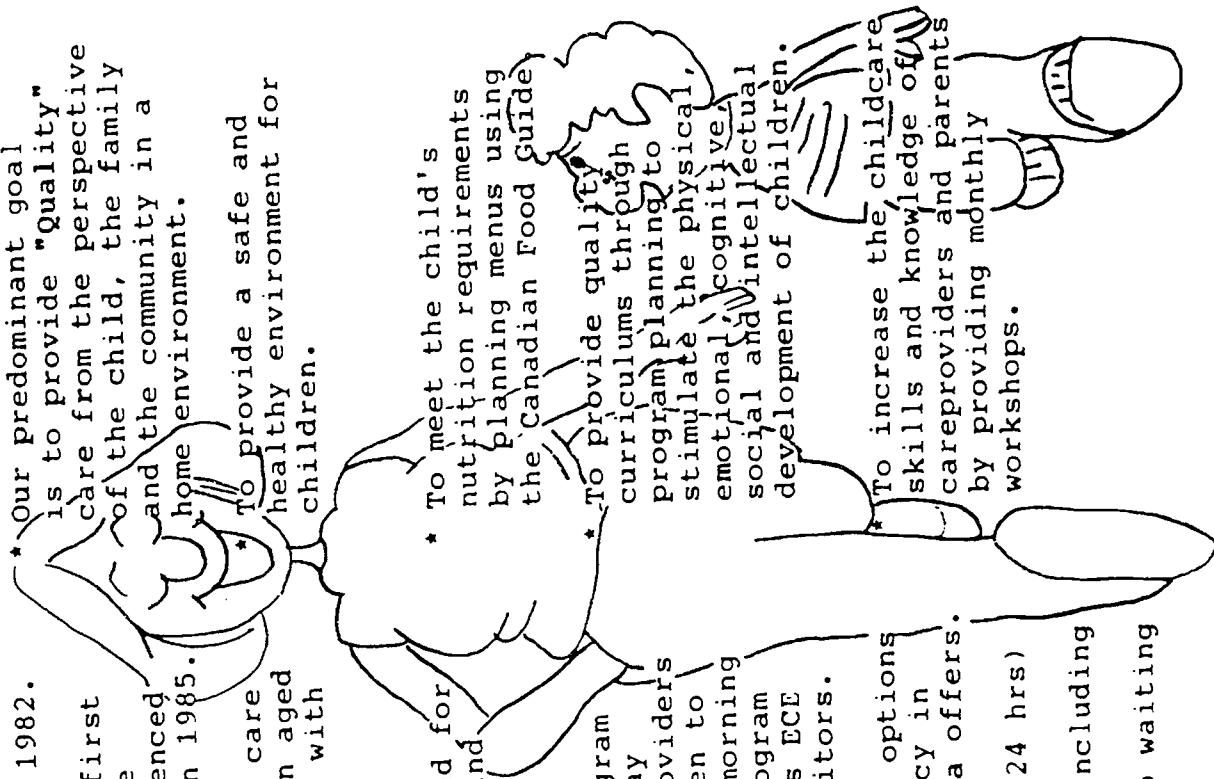 1982.
first
1985.
care
aged
with
for
to
morning
ECE
options
in
offers.
24 hrs)
waiting
* Our predominant goal
is to provide "Quality"
care from the perspective
of the child, the family
and the community in a
home environment.
* To provide a safe and
healthy environment for
children.
* To meet the child's
nutrition requirements
by planning menus using
the Canadian Food Guide
* To provide quality
curriculums through
program planning to
stimulate the physical,
emotional, cognitive,
social and intellectual
development of children.
* To increase the childcare
skills and knowledge of
careproviders and parents
by providing monthly
workshops.